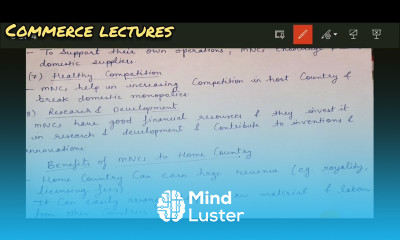 COMMERCE LECTURES
- To support their own operations, MNCs
domestic suppliers.
(7) Healthy Competition
- MNCs help in increasing Competition in host Country &
break domestic monopolies.
Research & Development
MNCs have good financial resources & they invest it
in research & development & Contribute to inventions &
innovations.
Benefits of MNCs to Home Country
- Home Country Can earn huge revenue (eg royality,
licensing fees)
- It Can easily material & labour
from other Countries
Mind
Luster